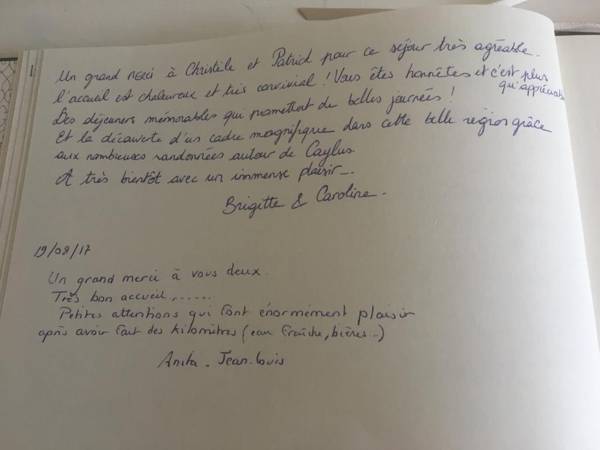 Un grand merci à Christèle et Patrick pour ce séjour très agréable.
l'accueil est chaleureux et très convivial ! Vous êtes honnêtes et c'est plus
qu'appréciable
Des déjeuners mémorables qui promettent de belles journées !
Et la découverte d'un cadre magnifique dans cette belle région grâce
aux nombreuses randonnées autour de Caylus
A très bientôt avec un immense plaisir_.
Brigitte & Caroline.
19/08/17
Un grand merci à vous deux.
Très bon accueil,......
Petites attentions qui font énormément plaisir
après avoir fait des kilomètres (eau fraîche, bières..)
Anita. Jean.louis